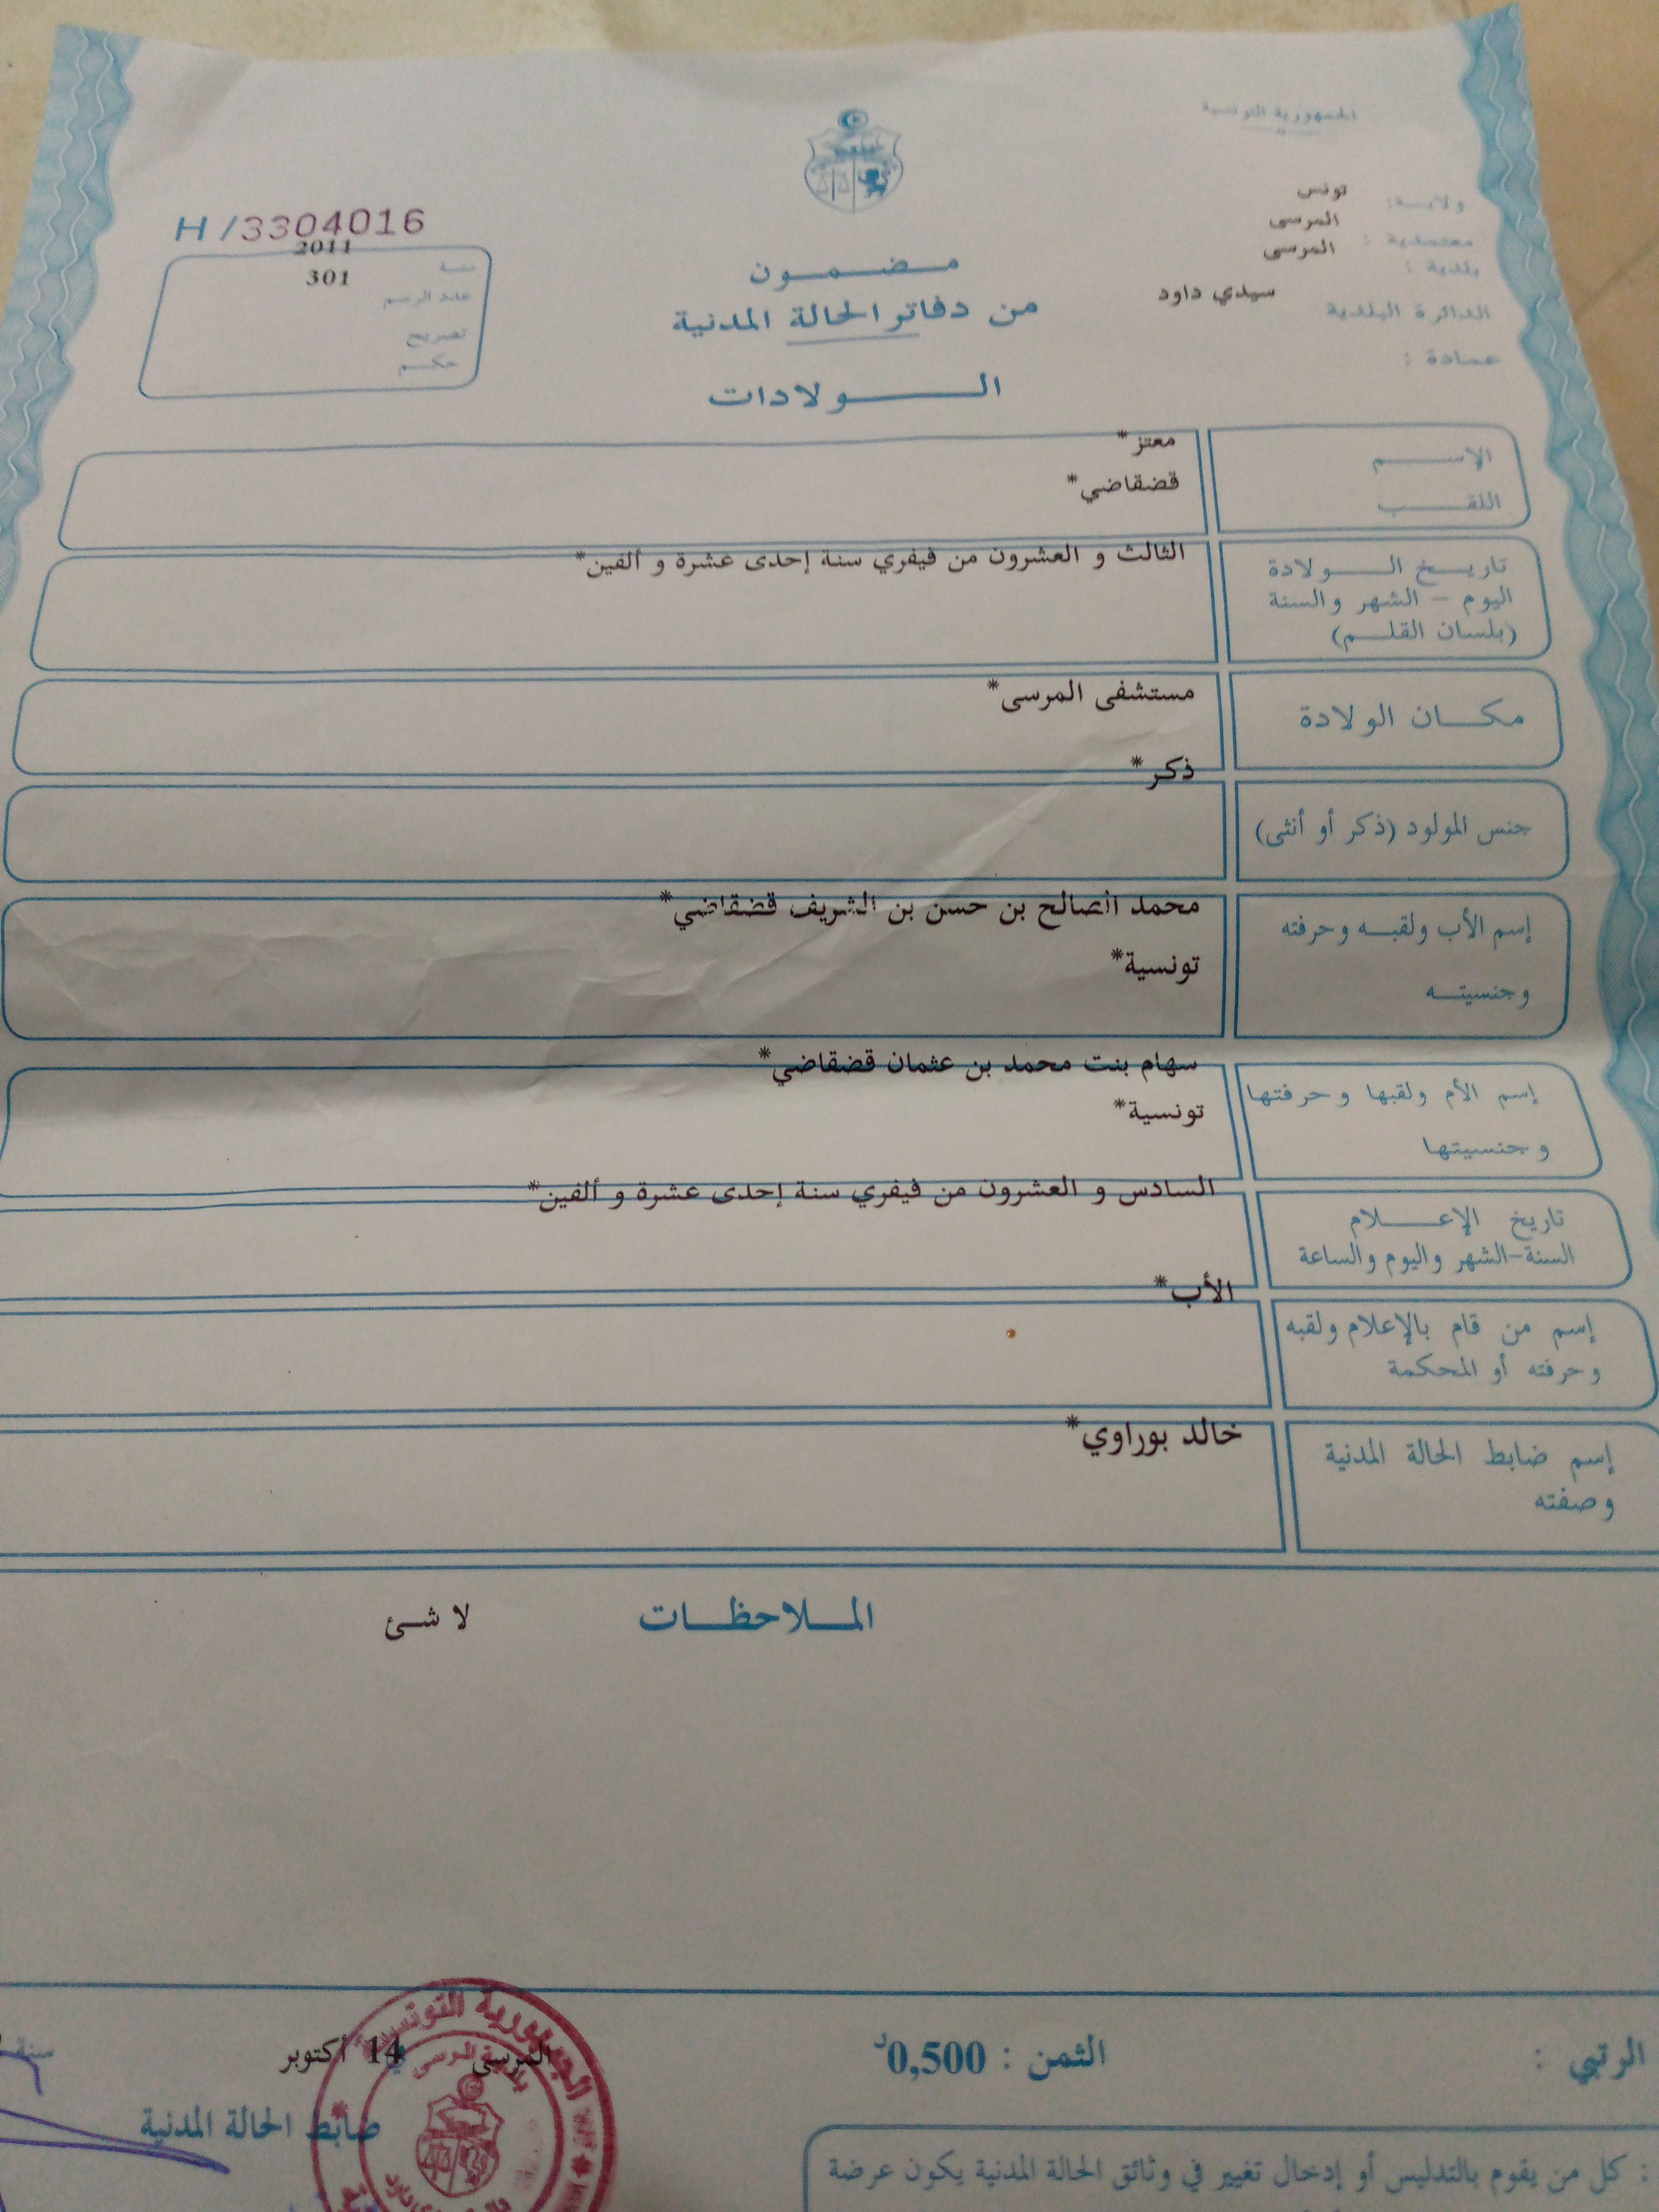 الجمهورية التونسية
ولاية : تونس
معتمدية : المرسى
بلدية : المرسى
الدائرة البلدية سيدي داود
عمادة :
H /3304016
سنة 2011
عدد الرسم 301
تصريح
حكم
مضمون
من دفاتر الحالة المدنية
الولادات
الاسم معتز*
اللقب قضقاضي*
تاريخ الولادة الثالث و العشرون من فيفري سنة إحدى عشرة و ألفين*
اليوم - الشهر والسنة
(بلسان القلم)
مكان الولادة مستشفى المرسى*
جنس المولود (ذكر أو أنثى) ذكر*
إسم الأب ولقبه وحرفته محمد الصالح بن حسن بن الشريف قضقاضي*
وجنسيته تونسية*
إسم الأم ولقبها وحرفتها سهام بنت محمد بن عثمان قضقاضي*
وجنسيتها تونسية*
تاريخ الإعلام السادس و العشرون من فيفري سنة إحدى عشرة و ألفين*
السنة-الشهر واليوم والساعة
إسم من قام بالإعلام ولقبه الأب*
وحرفته أو المحكمة
إسم ضابط الحالة المدنية خالد بوراوي*
وصفته
الملاحظات لا شئ
الرتبي :
الثمن : 0,500د
المرسى في 14 أكتوبر سنة
ضابط الحالة المدنية
الجمهورية التونسية
بلدية المرسى
: كل من يقوم بالتدليس أو إدخال تغيير في وثائق الحالة المدنية يكون عرضة